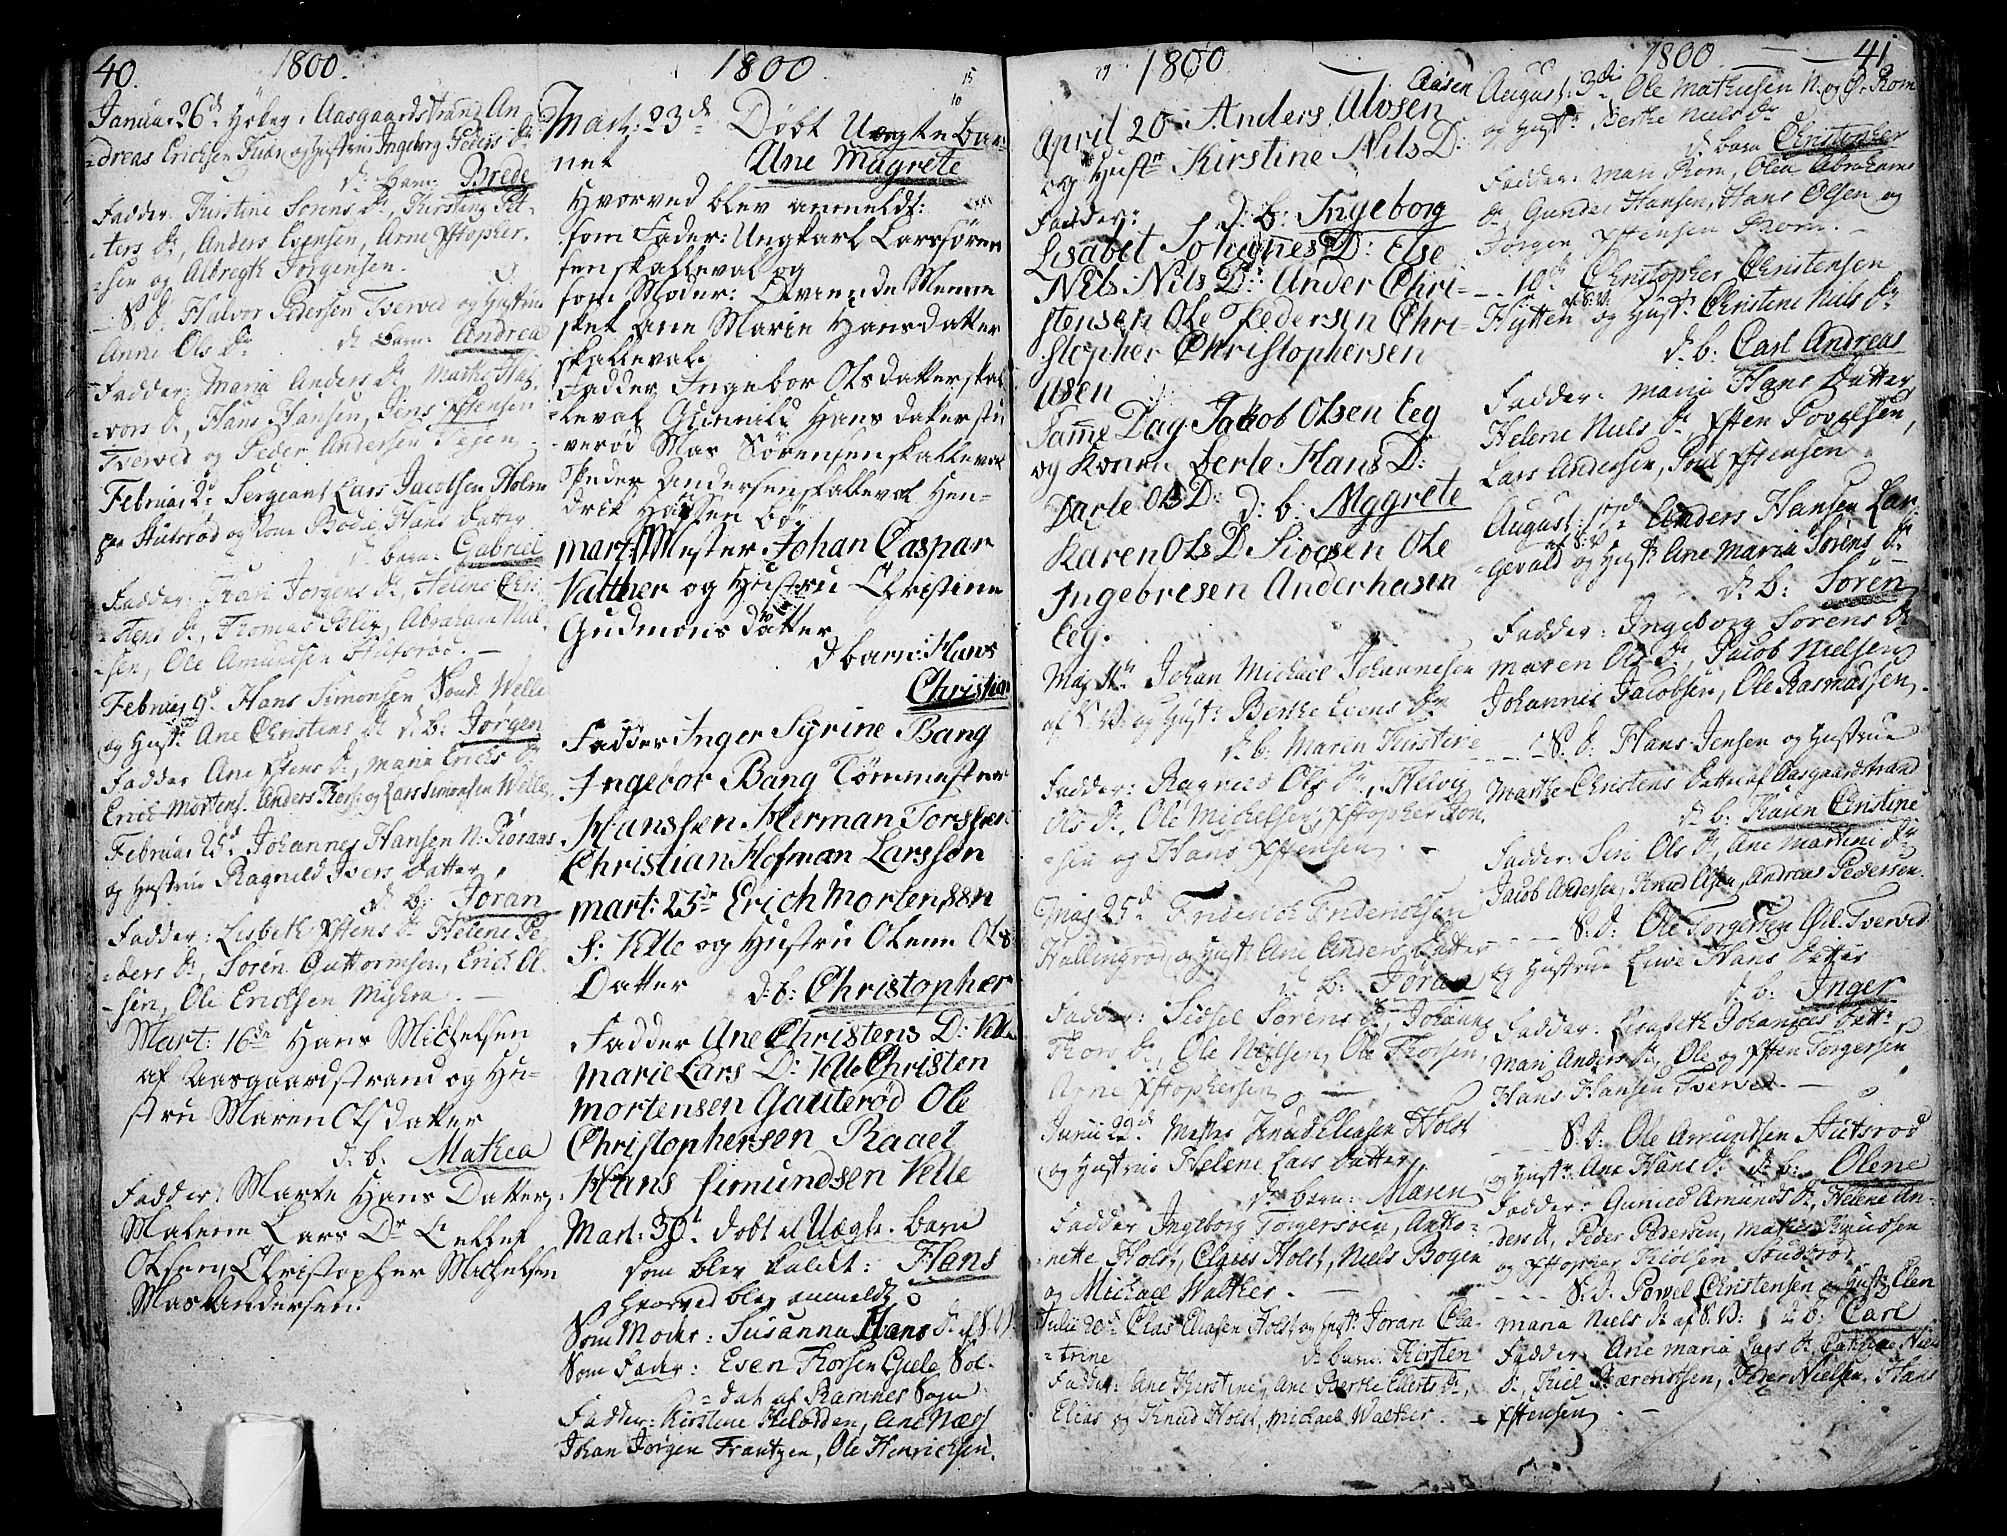 40. 1800.
Januar 26d Høker i Aasgaardstrand An-
-dreas Erichsen Fuhr og Hustrue Ingeborg Peders Dr
d. barn: Brede
Fadder: Kirstine Sørens Dr, Kirstine Pet-
-ters Dr, Anders Evensen, Arne Xstopher-
-sen og Albregth Jørgensen.
S. D. Halvor Pedersen Tverved og Hustrue
Anne Ols Dr d. barn: Andrea
Fadder: Maria Anders Dr, Marthe Hal-
-vors Dr, Hans Hansen, Jens Xstensen
Tverved og Peder Andersen
Februar 2d Sergeant Lars Jacobsen Holm
paa Hutsrød og Kone Bodil Hans Datter
d. barn: Gabriel
Fadder: Kari Jørgens Dr, Helene Chri-
-stens Dr, Thomas Abraham Niel-
-sen, Ole Amundsen Hutsrød.
Februar 9d Hans Simonsen Sond. Welle
og Hust. Ane Christens Dr d. b. Jørgen
Fadder Ane Xstens Dr, Maria Erichs Dr
Erich Mortens. Anders Thors: og Lars Simonsen Welle
Februar 25d Johannes Hansen N. Roraas
og Hustrue Ragnild Ivers Datter,
d. b. Joran
Fadder: Lisbeth Xstens Dr Helene Pe-
-ders Dr, Søren Guttormsen, Erich Ol-
-sen, Ole Erichsen Miskra.
Mart: 16de Hans Michelsen
af Aasgaardstrand og Hu-
stru Maren Olsdatter
d. b. Mathea
Fadder: Marte Hans Datter,
Malene Lars Dr Ellef
Olsen, Christopher Michelsen
Mas Andersen.
1800
Mart: 23de Døbt Uægte Bar-
net Ane Magrete
Hvorved blev anmeldt:
som Fader: Ungkarl Lars Sören
sen skalleval og
som Moder: Qvinde Menne
sket Ane Marie Hansdatter
skalleval
Fadder Ingebor Olsdatter skal
leval Gunnild Hans datter stu
verød Mas Sørensen skalleval
Peder Andersen skalleval Hen-
drik Hansen bø,
mart: Mester Johan Caspar
Valther og Hustru Christine
Gudmons datter
d barn: Hans
Christian
Fadder Inger Syrine Bang
Ingebor Bang Tømmester
Hanssen Herman Torssen
Christian Hofman Larssen
mart: 25de Erich Mortenssen
S. Velle og Hustru Olene Ols
Datter d: b: Christopher
Fadder Ane Christens D: Velle
marie Lars D: Velle Christen
mortensen Gauterød Ole
Christophersen Raael
Hans Simundsen Velle
Mart: 30t døbt et Uægte barn
som blev kaldt: Hans
hvorved blev anmeldt
Som Moder: Susanna Hans Dr af S. V.
Som Fader: Even Thorsen Sol-
-dat af Ramnes Sogn
Fadder: Kirstine Ane Næss
Johan Jørgen Frantzen, Ole Henrichsen.
1800
Aasen
April 20 Anders Alvsen
og Hustr Kirstine Nils D:
d: b: Ingeborg
Fadder:
Lisabet Johannes D: Else
Nils Nils D: Ander Chri-
stensen Ole Pedersen Chri-
stopher Christophersen
Aasen
Samme Dag Jakob Olsen Eeg
og Konen berte Hans D:
d: b: Mggrete
Karen Ols D Sivesen Ole
Ingebresen Anderhasen
Eeg.
Maj 11te Johan Michael Johannesen
af S. V. og Hust. Berthe Evens Dr
d. b. Maren Kirstine
Fadder: Ragnild Ols Dr, Helvig
Ols Dr, Ole Michelsen, Xstopher Jon-
-sen og Hans Xstensen
Maj 25d Friderich Friderichsen
Hallingrød og Hust Ane Anders Datter
d. b. Jöran
Fadder: Sidsel Sørens Dr, Johanne
Thors Dr, Ole Nielsen, Ole Thorsen,
Arne Xstophersen
Junii 22d Mathis Knud Eliasen Holst
og Hustrue Helene Lars Datter,
d. barn: Maren
Fadder Ingeborg Torgersøen, Antho-
-nette Holst, Claus Holst, Niels Bogen
og Michael Walther.
Julii 20d Elias Eliasen Holst og Hust: Joran Cha-
-trine d. barn: Kirsten
Fadder: Ane Kirstine, Ane Berthe Ellerts Dr,
Elias og Knud Holst, Michael Walther.
1800 41
August: 3die Ole Mathisen N. og Ø. Rom
og Hustr Berthe Niels Dr
d. barn Christopher
Fadder: Mari Rom, Olea Abrahams
Dr, Gunder Hansen, Hans Olsen og
Jørgen Xstensen Rom.
10de Christopher Christensen
Hytten af S. V. og Hust. Christine Niels Dr
d. b: Carl Andreas
Fadder: Maria Hans Datter,
Helene Niels Dr Xsten Povelsen,
Lars Andersen, Poul Xstensen
August: 17de Anders Hansen Lar-
-gevald af S. V. og Hust. Ane Maria Sörens Dr
d. b: Sören
Fadder: Ingeborg Sørens Dr
Maren Ols Dr, Jacob Nielsen
Johannes Jacobsen, Ole Rasmussen.
S. D. Hans Jensen og Hustrue
Marthe Christens Datter af Aasgaardstrand
d. b: Karen Christine
Fadder: Siri Ols Dr, Ane Martini Dr
Jacob Andersen, Knud Olsen, Andreas Pedersen.
S. D. Ole Torgersen Tverved
og Hustrue Live Hans Datter
d. b: Inger
Fadder: Lisabeth Johannes Datt.
Mari Anders Dr, Ole og Xsten Torgersen
Hans Hansen Tverved.
S. D. Ole Amundsen Hutsrød
og Hustr. Ane Hans Dr d. b: Olene
Fadder: Gunild Amunds Dr, Helene An-
-ders D, Peder Pedersen, Mathis Knudsen
og Xstopher Kiølsen Studsrød
S. D. Powel Christensen og Hust: Elen
Maria Niels Dr af S. V: d. b: Carl
Fadder: Ane Maria Lars Dr Cathrine Niels
Dr, Kiel Bærentsen, Peder Nielsen, Hans
Xstensen